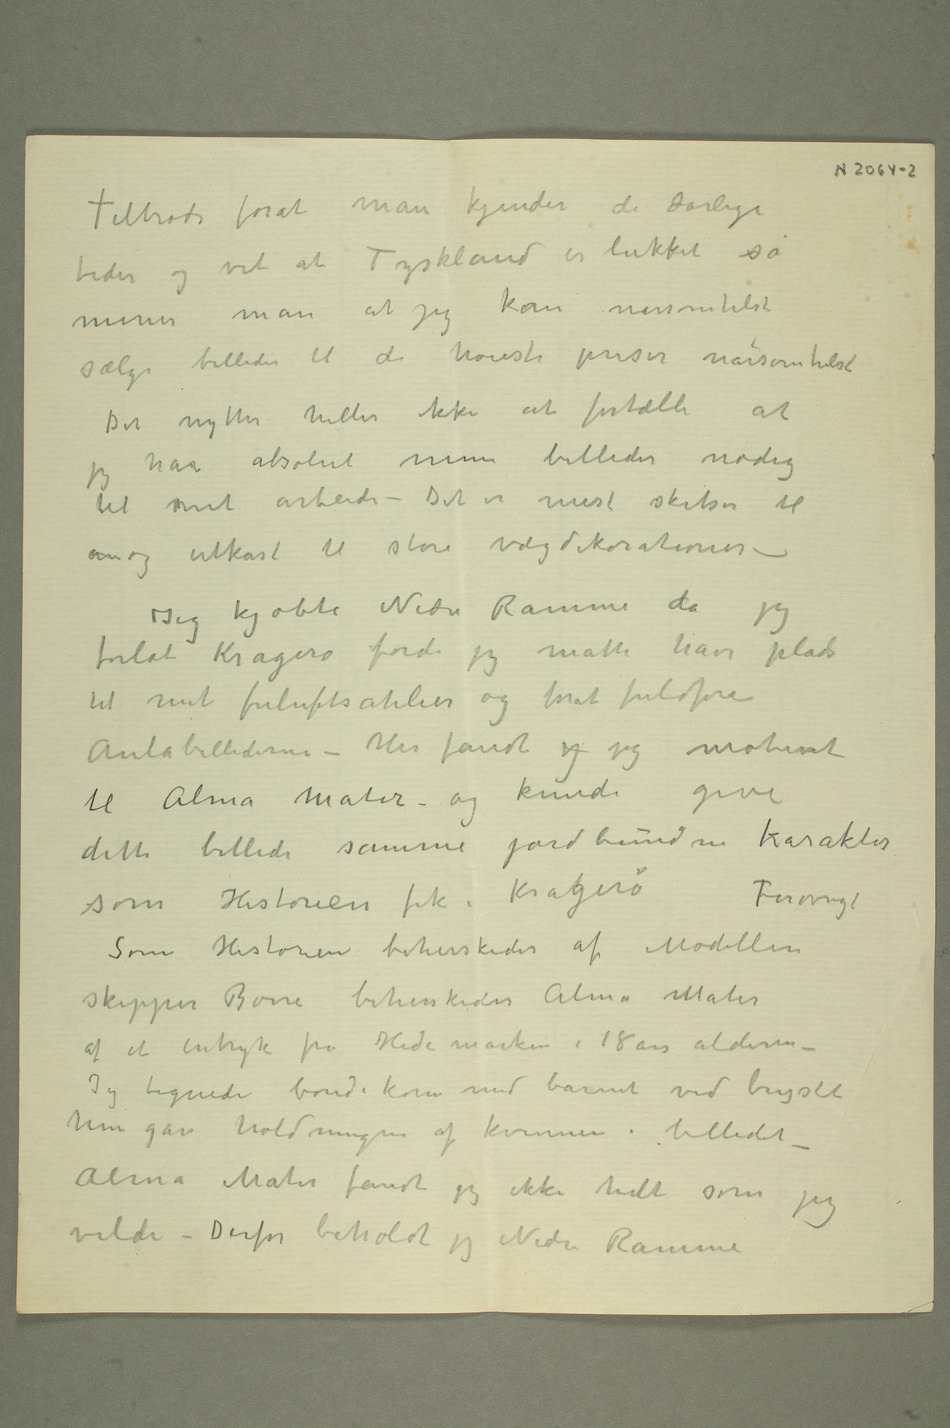 N 2064-2
Tiltrods forat man kjender de dårlige
tider og vet at Tyskland er lukket så
mener man at jeg kan nårsomhelst
sælge billeder til de høieste priser nårsomhelst
Det nytter heller ikke at fortælle at
jeg har absolut mine billeder nødig
til mit arbeide – Det er mest skitser til
og utkast til store vægdekorationer –
Jeg kjøbte Nedre Ramme da jeg
forlot Kragerø fordi jeg måtte have plads
til mit friluftsatelier og forat fuldføre
Aulabillederne – Her fandt jeg motivet
til Alma Mater – og kunde give
dette billede samme jordbundne karakter
som Historien fik i Kragerø Forøvrigt
Som Historien beherskedes af Modellen
skipper Børre beherskedes Alma Mater
af et intryk fra Hedemarken i 18 års alderen –
Jeg tegnede bondekone med barnet ved brystet
hun gav holdningen af kvinnen i billedet –
Alma Mater fandt jeg ikke helt som jeg
vilde – Derfor beholdt jeg Nedre Ramme